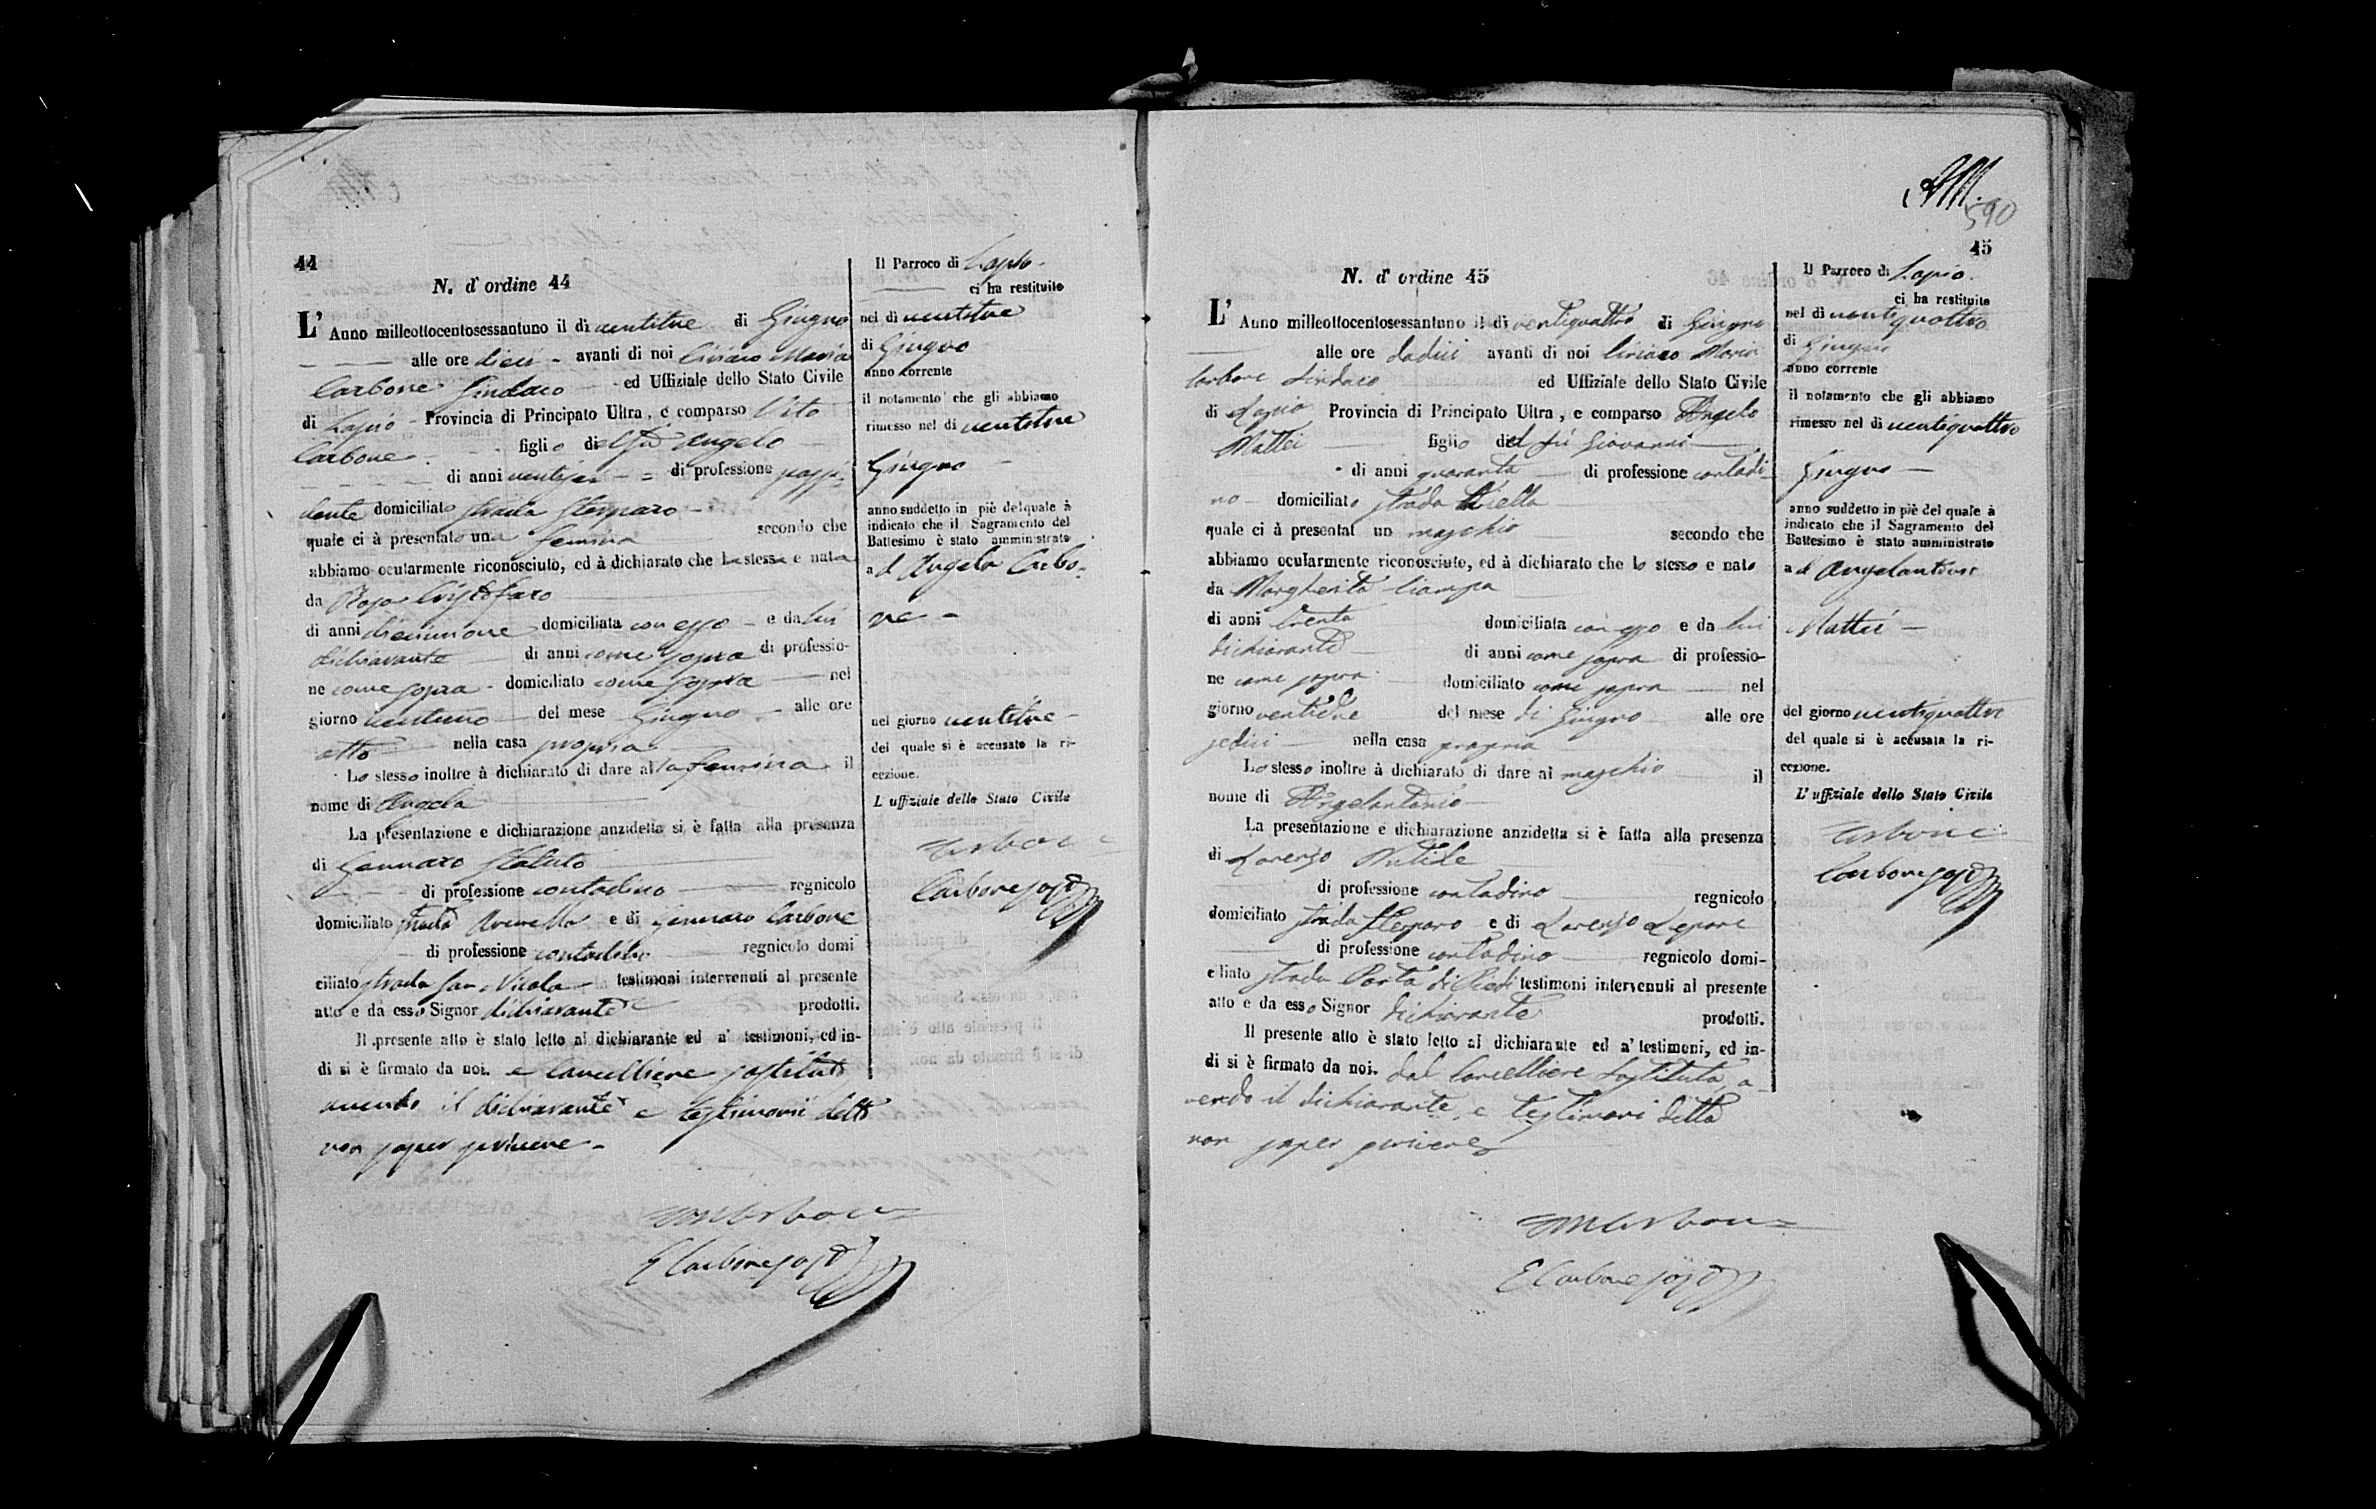 44
N. d' ordine 44
L' Anno milleottocentosessantuno il dì ventitre di Giugno
alle ore dieci avanti di noi Ciriaco Maria
Carbone Sindaco ed Uffiziale dello Stato Civile
di Lapio Provincia di Principato Ultra, è comparso Vito
Carbone figlio del fu Angelo
di anni ventisei di professione possi-
dente domiciliato strada
quale ci à presentato una femina secondo che
abbiamo ocularmente riconosciuto, ed à dichiarato che la stessa e nata
da Rosa Cristofaro
di anni diecinnove domiciliata con esso e da lui
dichiarante di anni come sopra di professio-
ne come sopra domiciliato come sopra nel
giorno ventuno del mese Giugno alle ore
otto nella casa propria
Lo stesso inoltre à dichiarato di dare alla femina il
nome di Angela
La presentazione e dichiarazione anzidetta si è fatta alla presenza
di Gennaro Statuto
di professione contadino regnicolo
domiciliato strada e di Gennaro Carbone
di professione contadino regnicolo domi
ciliato strada San Nicola testimoni intervenuti al presente
atto e da esso Signor dichiarante prodotti.
Il presente atto è stato letto al dichiarante ed a' testimoni, ed in-
di si è firmato da noi. e Cancelliere sostituto
avendo il dichiarante e testimonii detto
non saper scrivere
E Carbone sosto
Il Parroco di Lapio
ci ha restituito
nel dì ventitre
di Giugno
anno corrente
il notamento che gli abbiamo
rimesso nel dì ventitre
Giugno
anno suddetto in piè del quale à
indicato che il Sagramento del
Battesimo è stato amministrato
a d Angela Carbo-
ne
nel giorno ventitre
del quale si è accusato la ri-
cezione.
L' uffiziale dello Stato Civile
Carbone
Carbone sosto
590
45
N. d' ordine 45
L' Anno milleottocentosessantuno il dì ventiquattro di Giugno
alle ore dodici avanti di noi Ciriaco Maria
Carbone Sindaco ed Uffiziale dello Stato Civile
di Lapio Provincia di Principato Ultra, e comparso Angelo
Mattei figlio del fu Giovanni
di anni quaranta di professione contadi-
no domiciliato strada
quale ci à presentat un maschio secondo che
abbiamo ocularmente riconosciuto, ed à dichiarato che lo stesso e nato
da Margherita Ciampa
di anni trenta domiciliata con esso e da lui
dichiarante di anni come sopra di professio-
ne come sopra domiciliato come sopra nel
giorno ventidue del mese di Giugno alle ore
sedici nella casa propria
Lo stesso inoltre à dichiarato di dare al maschio il
nome di Angelantonio
La presentazione e dichiarazione anzidetta si è fatta alla presenza
di Lorenzo
di professione contadino regnicolo
domiciliato strada e di Lorenzo Lepore
di professione contadino regnicolo domi-
ciliato strada Porta di Piedi testimoni intervenuti al presente
atto e da esso Signor dichiarante prodotti.
Il presente atto è stato letto al dichiarante ed a' testimoni, ed in-
di si è firmato da noi. dal Cancelliere Sostituto, a-
vendo il dichiarante, e testimoni detto
non saper scrivere
E Carbone sosto
Il Parroco di Lapio
ci ha restituito
nel dì ventiquattro
di Giugno
anno corrente
il notamento che gli abbiamo
rimesso nel dì ventiquattro
Giugno
anno suddetto in piè del quale à
indicato che il Sagramento del
Battesimo è stato amministrato
a d Angelantonio
Mattei
del giorno ventiquattro
del quale si è accusata la ri-
cezione.
L' uffiziale dello Stato Civile
Carbone
Carbone sosto